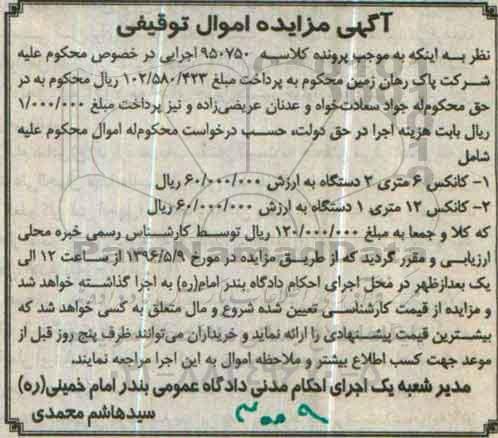 آگهی مزایده اموال توقیفی
نظر به اینکه به موجب پرونده کلاسه ۹۵۰۷۵۰ اجرایی در خصوص محکوم علیه
شرکت پاک رهان زمین محکوم به پرداخت مبلغ ۱۰۲/۵۸۰/۴۲۳ ریال محکوم به در
حق محکوم‌له جواد سعادت‌خواه و عدنان عریضی‌زاده و نیز پرداخت مبلغ ۱/۰۰۰/۰۰۰
ریال بابت هزینه اجرا در حق دولت، حسب درخواست محکوم‌له اموال محکوم علیه
شامل
۱- کانکس ۶ متری ۲ دستگاه به ارزش ۶۰/۰۰۰/۰۰۰ ریال
۲- کانکس ۱۲ متری ۱ دستگاه به ارزش ۶۰/۰۰۰/۰۰۰ ریال
که کلا و جمعا به مبلغ ۱۲۰/۰۰۰/۰۰۰ ریال توسط کارشناس رسمی خبره محلی
ارزیابی و مقرر گردید که از طریق مزایده در مورخ ۱۳۹۶/۵/۹ از ساعت ۱۲ الی
یک بعدازظهر در محل اجرای احکام دادگاه بندر امام(ره) به اجرا گذاشته خواهد شد
و مزایده از قیمت کارشناسی تعیین شده شروع و مال متعلق به کسی خواهد شد که
بیشترین قیمت پیشنهادی را ارائه نماید و خریداران می‌توانند ظرف پنج روز قبل از
موعد جهت کسب اطلاع بیشتر و ملاحظه اموال به این اجرا مراجعه نمایند.
مدیر شعبه یک اجرای احکام مدنی دادگاه عمومی بندر امام خمینی(ره)
سیدهاشم محمدی
۳۰۰۹